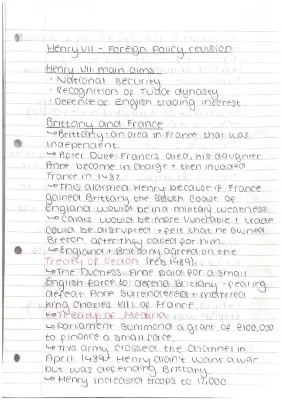 Henry VII - Foreign Policy revision
Henry VII main aims
· National security.
· Recognition of Tudor dynasty
· Defence of English trading interest.
Brittany and France
↳ Brittany - an area in France that was
independent.
↳ After Duke Francis died, his daughter
Anne become in charge + then invaded
France in 1487.
↳ This alarmed Henry because if France
gained Brittany the South Coast of
England would be in a military weakness.
↳ Calais would be more vunerable + trade
could be disrupted + felt that he owned
Breton after they cared for him.
↳ England + Brittany agreed on the
Treaty of Redon (Feb 1489).
↳ The Duchess Anne paid for a small
English force to defend Brittany - fearing
defeat Anne surrendered + married
King Charles VIII of France.
↳ Treaty of Medina
↳ Parliament summond a grant of £100,000
to finance a small force.
↳ This army crossed the Channel in
April 1489. Henry didn't want a war
but was defending Brittany.
↳ Henry increased troops to 12,000.